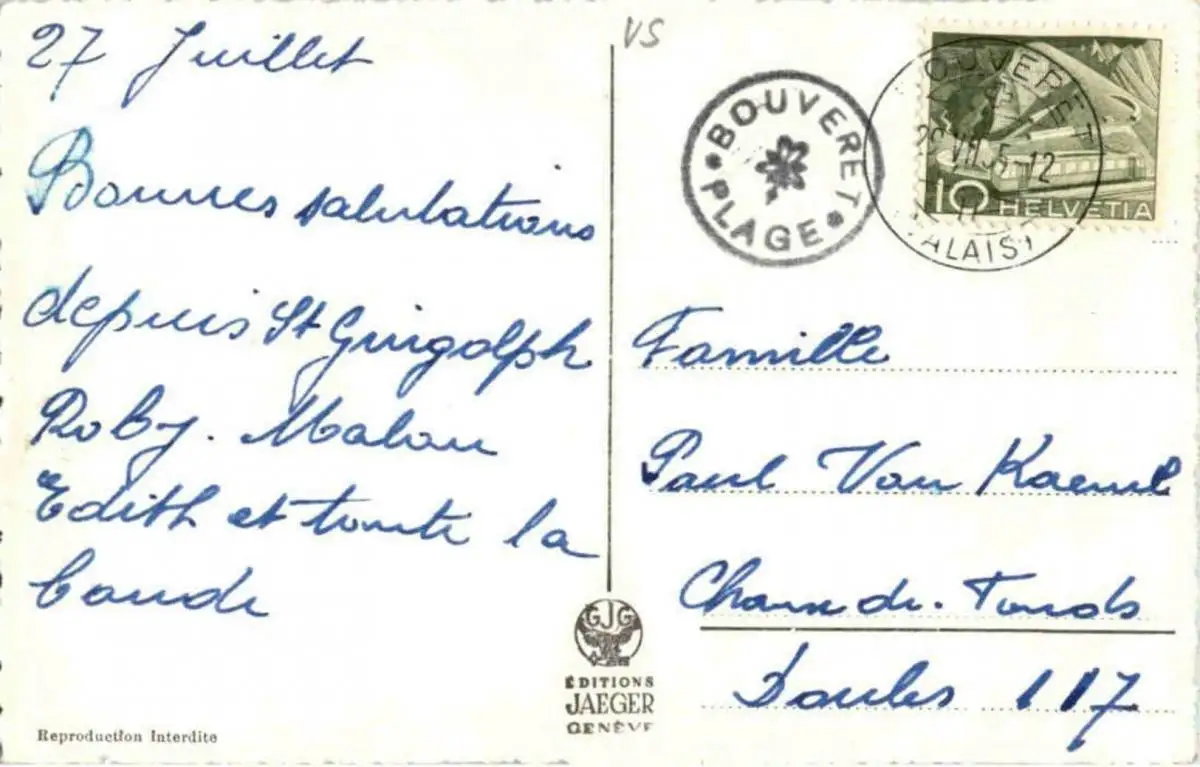 27 Juillet
Bonnes salutations
depuis St Guigolph
Roby. Malou
Edith et toute la
bande
Reproduction Interdite
VS
BOUVERET
PLAGE
BOUVERET
VII.5 -12
VALAIS
10 HELVETIA
Famille
Paul Von Kaenel
Chaux-de-Fonds
Doubs 117
GJG
ÉDITIONS
JAEGER
GENÈVE